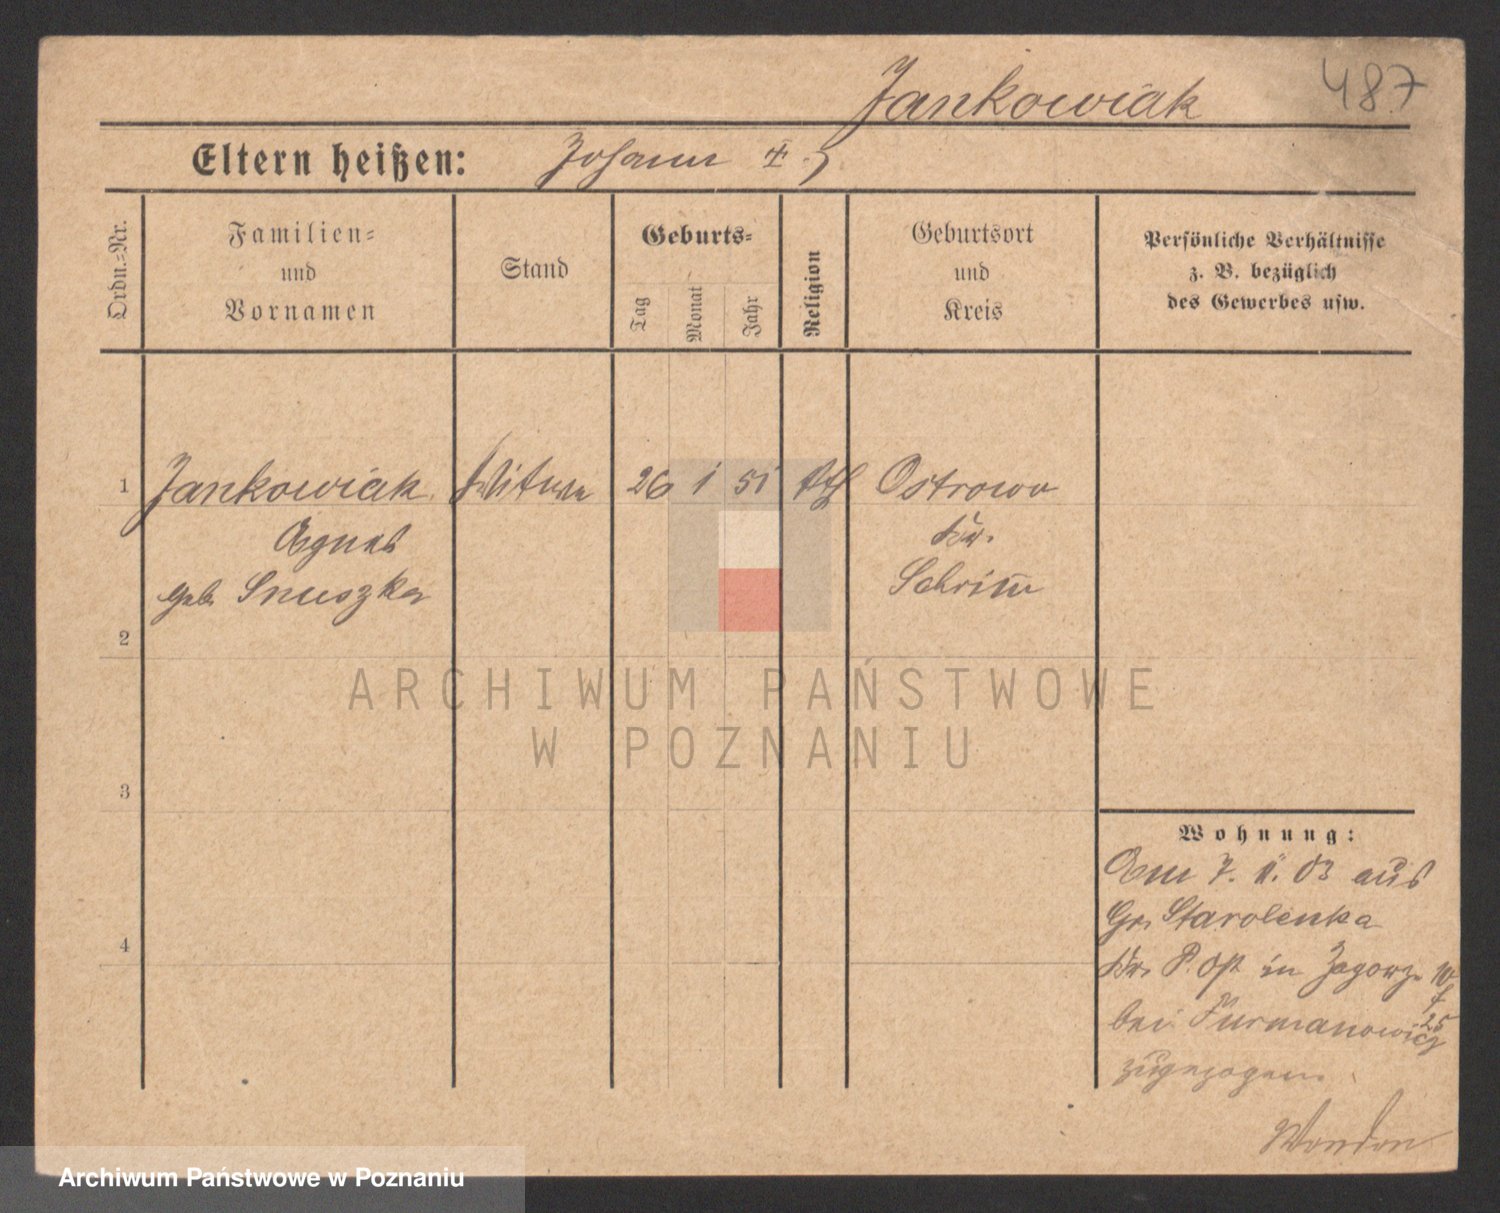 Jankowiak 487
Eltern heißen: Johann +
Ordn.-Nr.
Familien-
und
Vornamen
Stand
Geburts-
Tag
Monat
Jahr
Religion
Geburtsort
und
Kreis
Persönliche Verhältnisse
z. B. bezüglich
des Gewerbes usw.
1 Jankowiak Witwe 26 1 51 kth Ostrowo
Agnes Kr.
geb. Snuszka Schrimm
2
3
4
Wohnung:
Am 7. 11. 03 aus
Gr. Starolenka
Kr. P. Ost in Zagorze 10
bei Furmanowicz 25
zugezogen.
ARCHIWUM PAŃSTWOWE
W POZNANIU
Archiwum Państwowe w Poznaniu